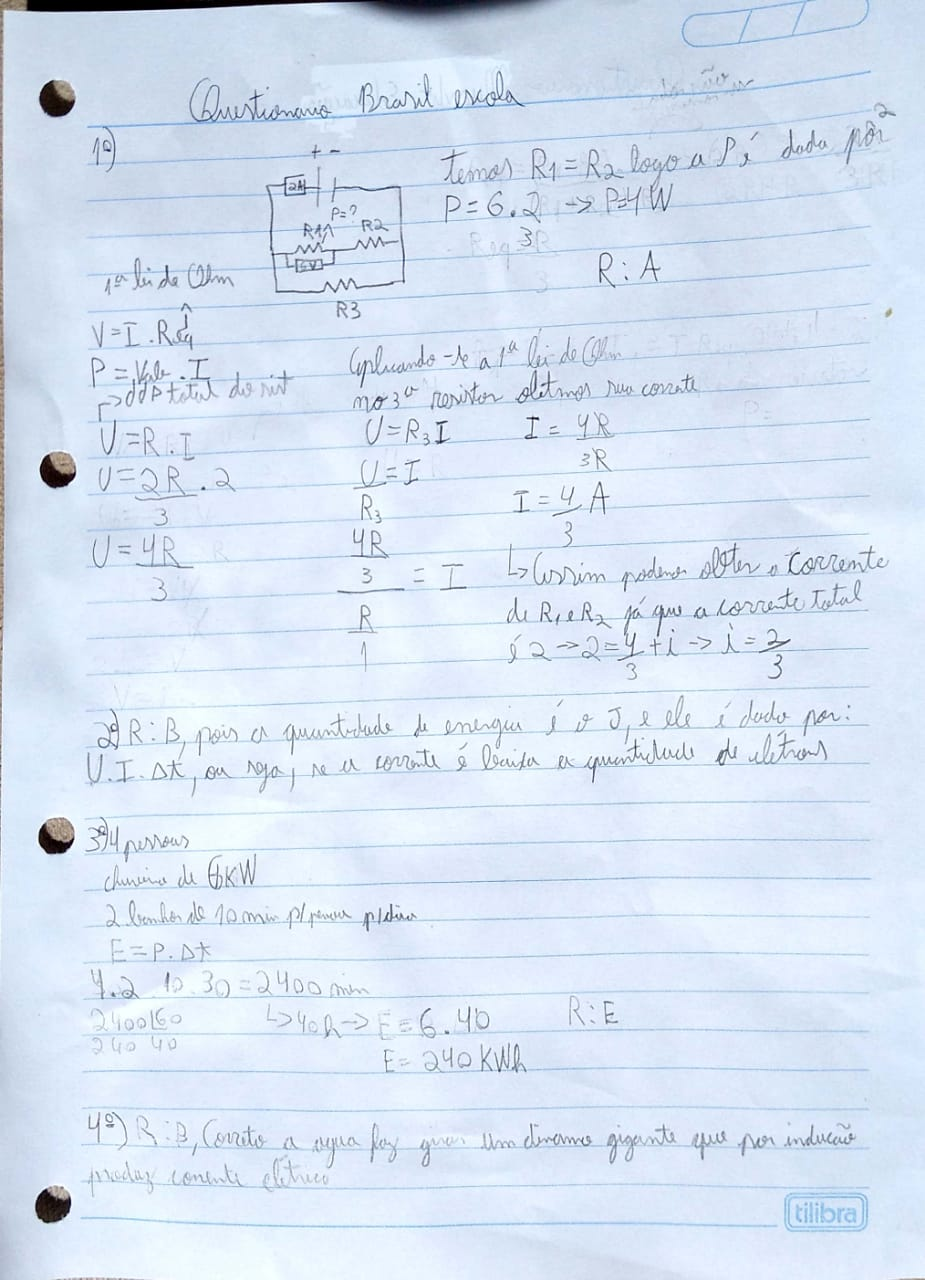 Questionario Brasil escola
1º)
+ -
2A
P=?
R1 R2
6V
R3
temos R1 = R2 logo a P é dada por
P = 6 . 2 → P = 4 W
3
R : A
1ª lei de Ohm
V = I . Req
P = . I
→ ddp total do
U = R . I
U = 2R . 2
3
U = 4R
3
Aplicando-se a 1ª lei de Ohm
no 3º resistor obtemos sua corrente
U = R3 I I = 4R
3R
U = I
R3
I = 4 A
3
4R
3 = I
R
1
↳ Assim podemos obter a corrente
de R1 e R2 já que a corrente total
é 2 → 2 = 4 + i → i = 2
3 3
2º) R : B, pois a quantidade de energia é o J, e ele é dado por:
U. I. Δt, ou seja, se a corrente é baixa a quantidade de eletrons
3º) 4 pessoas
chuveiro de 6KW
2 banhos de 10 min p/ pessoa p/dia
E = P. Δt
4.2 10. 30 = 2400 min
2400 60
240 40
↳ 40h → E = 6.40 R : E
E = 240 KWh
4º) R : B, Correto a agua faz girar um dinamo gigante que por indução
produz corrente elétrica
tilibra